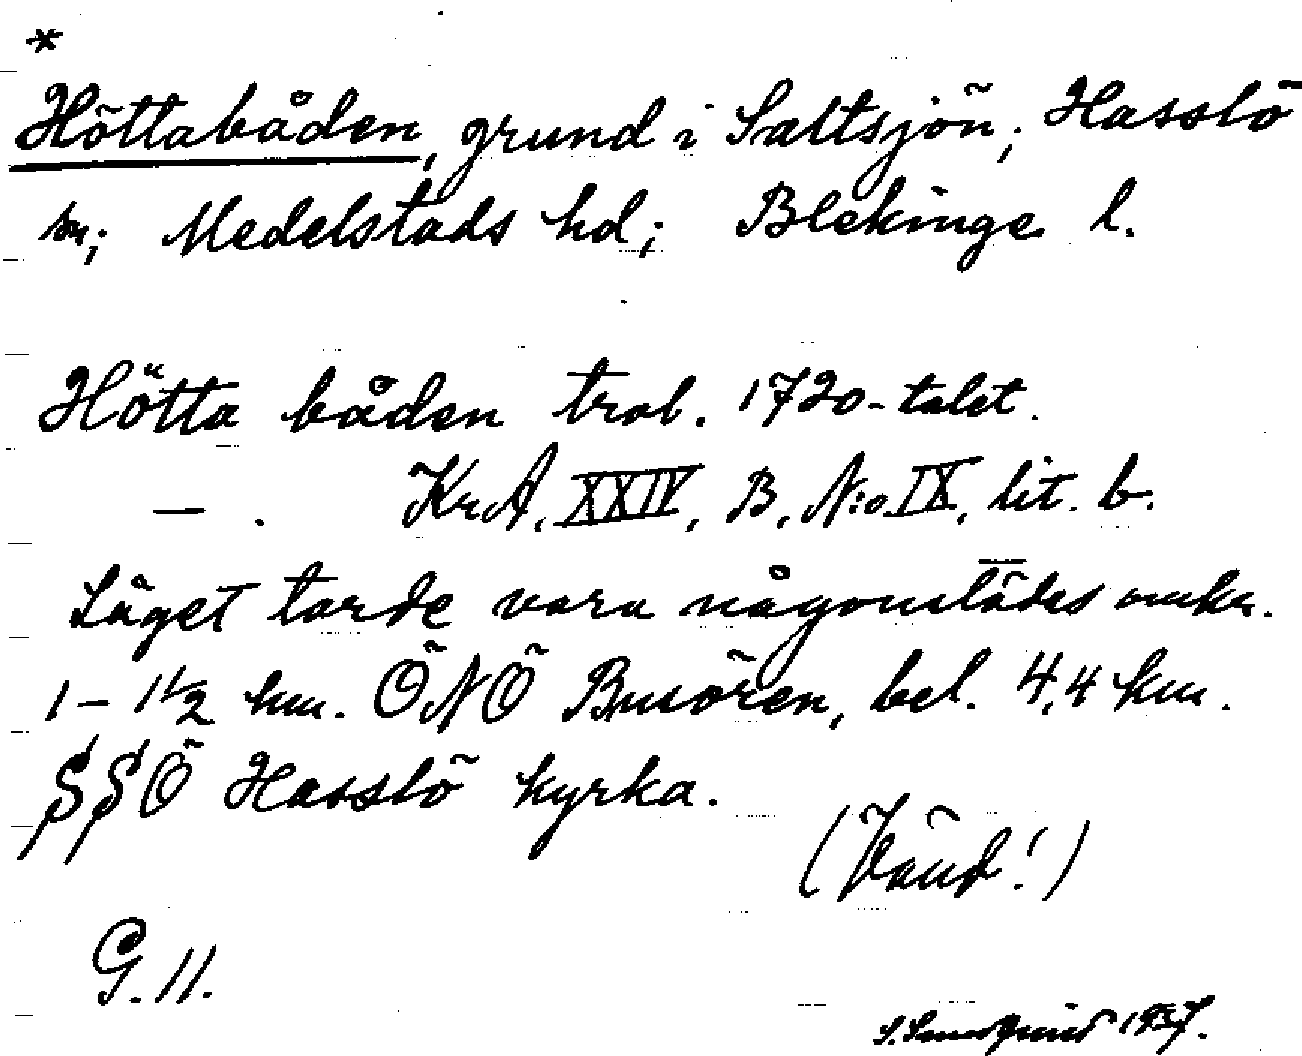 *
Höttabåden, grund i Saltsjön; Hasslö
sn; Medelstads hd; Blekinge l.
Hötta båden trol. 1720-talet.
— . KrA, XXIV, B, N:o IX, lit. b.
Läget torde vara någonstädes omkr.
1 – 1 1/2 km. ÖNÖ Busören, bel. 4,4 km.
SSÖ Hasslö kyrka.
(Vänd!)
G. 11.
1937.